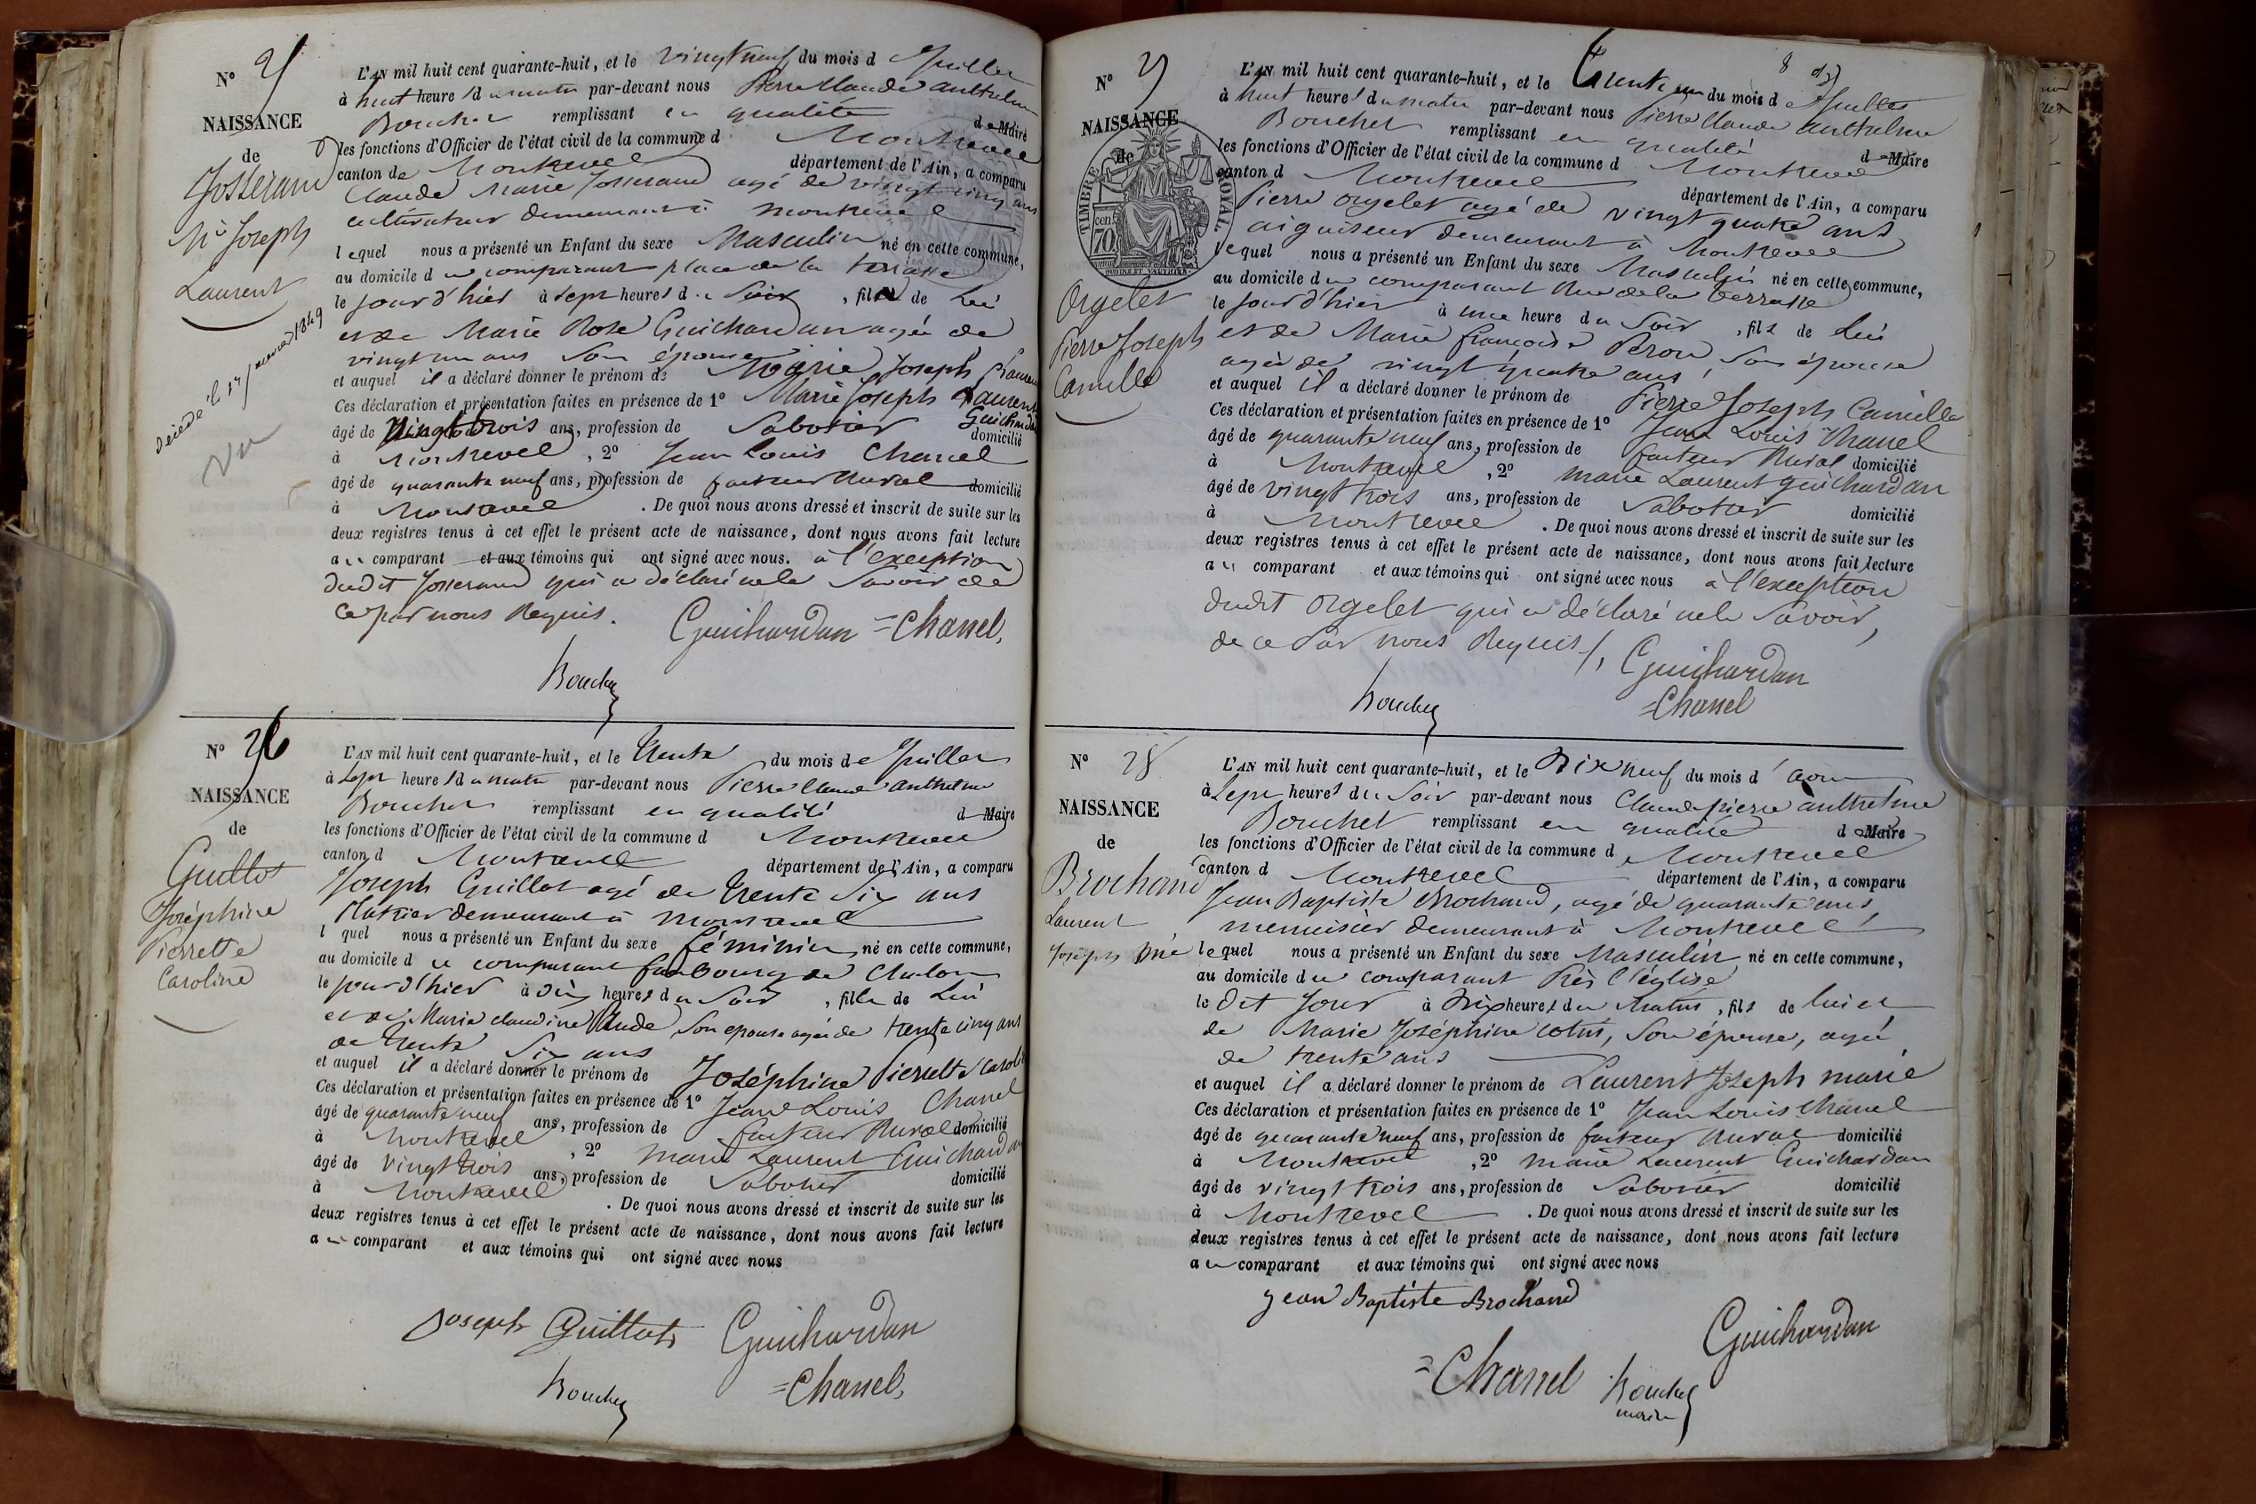 N° 25
NAISSANCE
de
Josserand
Mie Joseph
Laurent
décédé le 17 1849
Vu
L'AN mil huit cent quarante-huit, et le vingt neuf du mois de Juillet
à huit heures du matin par-devant nous Pierre Claude Anthelme
Bouchet remplissant en qualité de Maire
les fonctions d'Officier de l'état civil de la commune de Montrevel
canton de Montrevel département de l'Ain, a comparu
Claude Marie Josserand agé de vingt cinq ans
cultivateur demeurant à Montrevel
lequel nous a présenté un Enfant du sexe Masculin né en cette commune,
au domicile du comparant place de la terrasse
le jour d'hier à sept heures du Soir, fils de lui
et de Marie Rose Guichardan agée de
vingt un ans son épouse
et auquel il a déclaré donner le prénom de Marie Joseph Laurent
Ces déclaration et présentation faites en présence de 1° Marie Joseph Laurent
Guichardan
âgé de vingt trois ans, profession de Sabotier domicilié
à Montrevel, 2° Jean Louis Chanel
âgé de quarante neuf ans, profession de facteur Rural domicilié
à Montrevel. De quoi nous avons dressé et inscrit de suite sur les
deux registres tenus à cet effet le présent acte de naissance, dont nous avons fait lecture
au comparant et aux témoins qui ont signé avec nous. à l'exception
dudit Josserand qui a déclaré ne le Savoir de
ce par nous Requis.
Guichardan = Chanel,
Bouchet
N° 26
NAISSANCE
de
Guillot
Joséphine
Pierrette
Caroline
L'AN mil huit cent quarante-huit, et le trente du mois de Juillet
à Sept heures du matin par-devant nous Pierre Claude Anthelme
Bouchet remplissant en qualité de Maire
les fonctions d'Officier de l'état civil de la commune d Montrevel
canton d Montrevel département de l'Ain, a comparu
Joseph Guillot agé de trente six ans
Platrier demeurant à Montrevel
l quel nous a présenté un Enfant du sexe féminin né en cette commune,
au domicile du comparant faubourg de Chalon
le jour d'hier à dix heures du Soir, fille de lui
et de Marie claudine Son épouse agée de trente cinq ans
de trente Six ans
et auquel il a déclaré donner le prénom de Joséphine Pierrette Caroline
Ces déclaration et présentation faites en présence de 1° Jean Louis Chanel
âgé de quarante neuf ans, profession de facteur Rural domicilié
à Montrevel, 2° Marie Laurent Guichardan
âgé de vingt trois ans, profession de Sabotier domicilié
à Montrevel. De quoi nous avons dressé et inscrit de suite sur les
deux registres tenus à cet effet le présent acte de naissance, dont nous avons fait lecture
au comparant et aux témoins qui ont signé avec nous
Joseph Guillot Guichardan
Bouchet = Chanel,
8
N° 27
NAISSANCE
de
TIMBRE ROYAL
70 cen.
Orgelet
Pierre Joseph
Camille
L'AN mil huit cent quarante-huit, et le trente un du mois de Juillet
à huit heures du matin par-devant nous Pierre Claude Anthelme
Bouchet remplissant en qualité de Maire
les fonctions d'Officier de l'état civil de la commune d Montrevel
canton d Montrevel département de l'Ain, a comparu
Pierre Orgelet agé de vingt quatre ans
aiguiseur demeurant à Montrevel
lequel nous a présenté un Enfant du sexe Masculin né en cette commune,
au domicile du comparant Rue de la terrasse
le jour d'hier à une heure du Soir, fils de lui
et de Marie françoise Peron Son épouse
agée de vingt quatre ans
et auquel il a déclaré donner le prénom de Pierre Joseph Camille
Ces déclaration et présentation faites en présence de 1° Jean Louis Chanel
âgé de quarante neuf ans, profession de facteur Rural domicilié
à Montrevel, 2° Marie Laurent Guichardan
âgé de vingt trois ans, profession de Sabotier domicilié
à Montrevel. De quoi nous avons dressé et inscrit de suite sur les
deux registres tenus à cet effet le présent acte de naissance, dont nous avons fait lecture
au comparant et aux témoins qui ont signé avec nous à l'exception
dudit Orgelet qui a déclaré ne le Savoir,
de ce par nous Requis,
Guichardan
Bouchet = Chanel
N° 28
NAISSANCE
de
Brochand
Laurent
Joseph Mie
L'AN mil huit cent quarante-huit, et le Dix neuf du mois d'aout
à Sept heures du Soir par-devant nous Claude pierre anthelme
Bouchet remplissant en qualité de Maire
les fonctions d'Officier de l'état civil de la commune d Montrevel
canton d Montrevel département de l'Ain, a comparu
Jean Baptiste Brochand, agé de quarante ans
menuisier demeurant à Montrevel
lequel nous a présenté un Enfant du sexe Masculin né en cette commune,
au domicile du comparant Près l'église
le dit Jour à Dix heures du Matin, fils de lui et
de Marie Joséphine Cotin, Son épouse, agée
de trente ans
et auquel il a déclaré donner le prénom de Laurent Joseph marie
Ces déclaration et présentation faites en présence de 1° Jean Louis Chanel
âgé de quarante neuf ans, profession de facteur Rural domicilié
à Montrevel, 2° Marie Laurent Guichardan
âgé de vingt trois ans, profession de Sabotier domicilié
à Montrevel. De quoi nous avons dressé et inscrit de suite sur les
deux registres tenus à cet effet le présent acte de naissance, dont nous avons fait lecture
au comparant et aux témoins qui ont signé avec nous
jean Baptiste Brochand
Guichardan
= Chanel Bouchet
maire